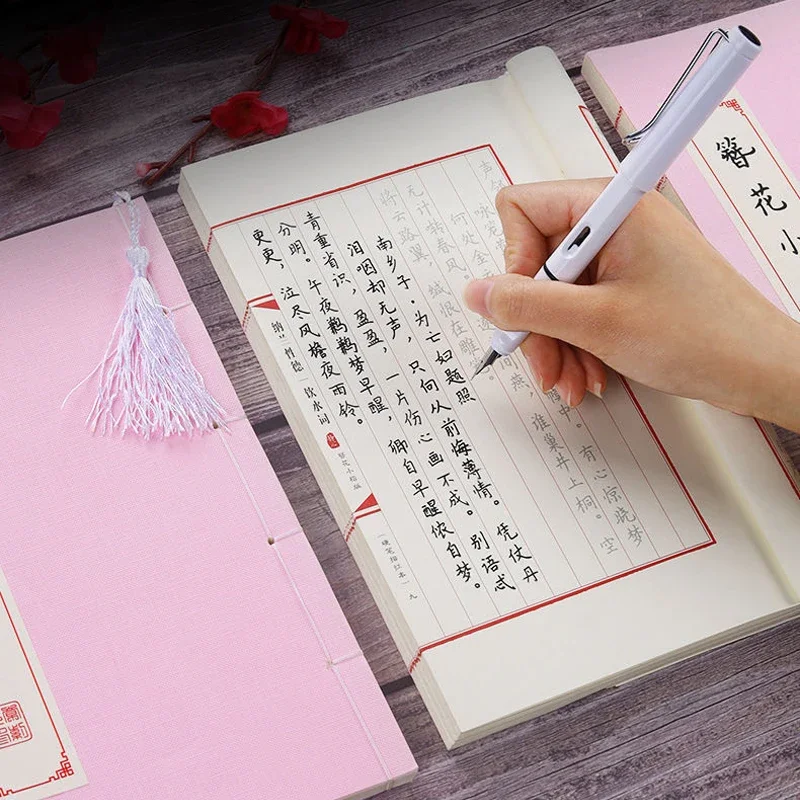 何处金
有心惊晓梦
无计啭春风。
间燕,谁巢井上桐。空
将云路翼,缄恨在雕笼。
南乡子·为亡妇题照
泪咽却无声,只向从前悔薄情。凭仗丹
青重省识,盈盈,一片伤心画不成。别语忒
分明。午夜鹣鹣梦早醒,卿自早醒侬自梦。
更更,泣尽风檐夜雨铃。
纳兰性德 饮水词
(硬笔描红本) 九
簪花小